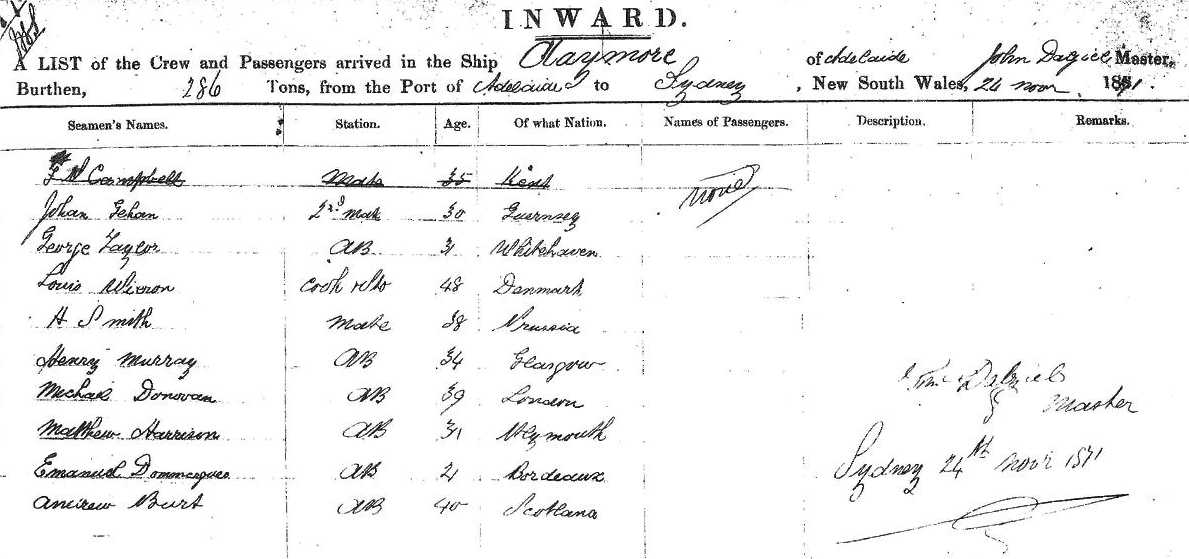 INWARD.
A LIST of the Crew and Passengers arrived in the Ship Claymore of Adelaide John Dalziel Master,
Burthen, 286 Tons, from the Port of Adelaide to Sydney, New South Wales, 24 Novr. 1871.
Seamen's Names. Station. Age. Of what Nation. Names of Passengers. Description. Remarks.
Campbell Mate 35 Kent none
Johan Gehan 2nd Mate 30 Guernsey
George Taylor AB 31 Whitehaven
Louis 48 Denmark
H Smith Mate 38 Prussia
Henry Murray AB 34 Glasgow
Michael Donovan AB 39 London
Matthew Harrison AB 31 Weymouth
Emanuel AB 21 Bordeaux
Andrew Burt AB 40 Scotland
Dalziel
Master
Sydney 24th Novr 1871